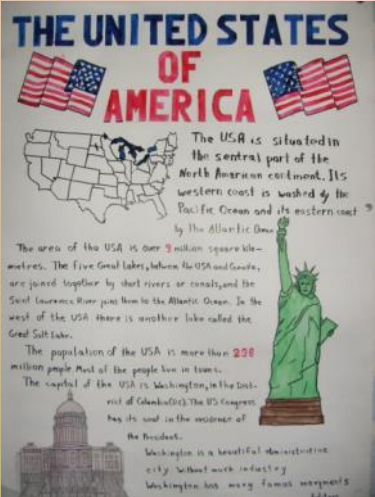 THE UNITED STATES
OF
AMERICA
The USA is situated in
the sentral part of the
North American continent. Its
western coast is washed by the
Pacific Ocean and its eastern coast
by the Atlantic Ocean
The area of the USA is over 9 million square kilo-
metres. The five Great Lakes, between the USA and Canada,
are joined together by short rivers or canals, and the
Saint Lawrence River joins them to the Atlantic Ocean. In the
west of the USA there is another lake called the
Great Salt Lake.
The population of the USA is more than 236
million people. Most of the people live in towns.
The capital of the USA is Washington, in the Dist-
rict of Columbia (DC). The US Congress
has its seat in the residence of
the President.
Washington is a beautiful administrative
city without much industry
Washington has many famous monuments